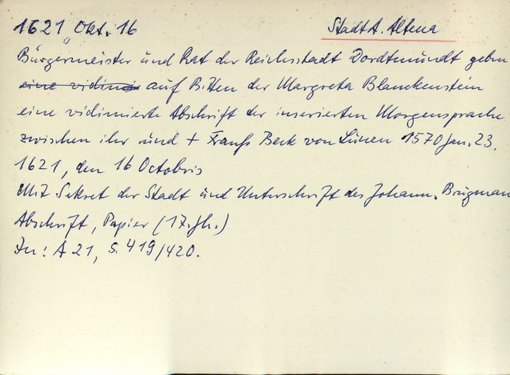 1621 Okt. 16 StadtA. Altena
Bürgermeister und Rat der Reichsstadt Dordtmundt geben
eine vidimi auf Bitten der Margreta Blanckenstein
eine vidimierte Abschrift der inserierten Morgensprache
zwischen ihr und + Franß Beck von Lünen 1570 Jan. 23.
1621, den 16 Octobris
Mit Sekret der Stadt und Unterschrift des Johann. Brügman
Abschrift, Papier (17. Jh.)
In: A 21, S. 419/420.